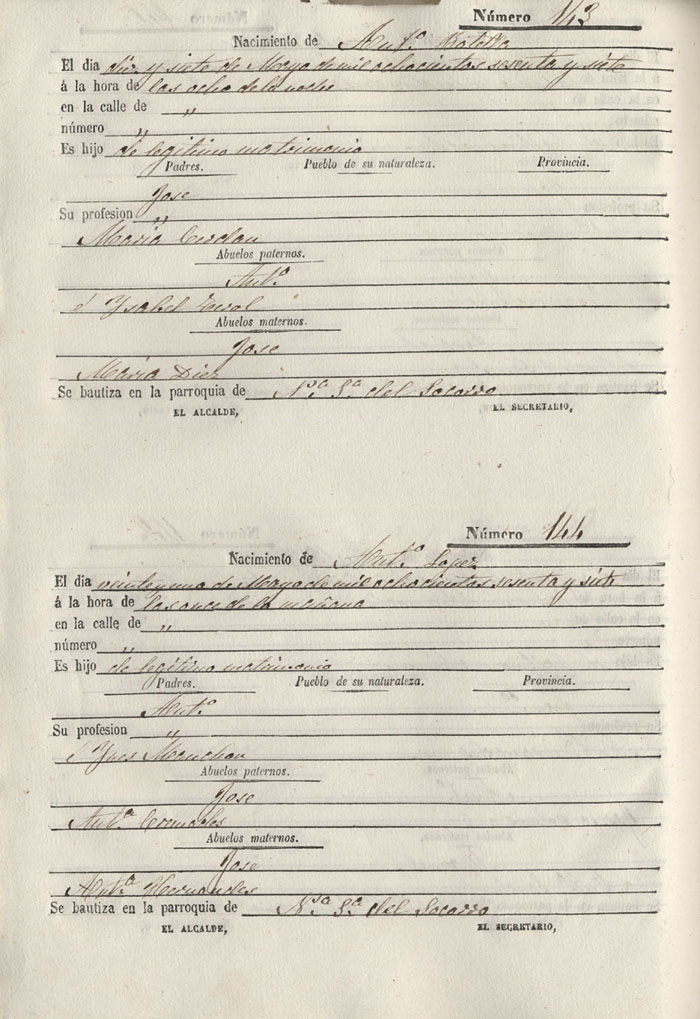 Número 143
Nacimiento de Antº Botella
El dia diez y siete de Mayo de mil ochocientos sesenta y siete
á la hora de las ocho de la noche
en la calle de „
número „
Es hijo de legitimo matrimonio
Padres. Pueblo de su naturaleza. Provincia.
Jose
Su profesion „
Maria Cerdan
Abuelos paternos.
Antº
é Ysabel
Abuelos maternos.
Jose
Maria Diez
Se bautiza en la parroquia de Nª Sª del Socorro
EL ALCALDE, EL SECRETARIO,
Número 144
Nacimiento de Antº Lopez
El dia veinte y uno de Mayo de mil ochocientos sesenta y siete
á la hora de las once de la mañana
en la calle de „
número „
Es hijo de legitimo matrimonio
Padres. Pueblo de su naturaleza. Provincia.
Antº
Su profesion „
é Ynes Menchon
Abuelos paternos.
Jose
Antª Cremades
Abuelos maternos.
Jose
Antª Hernandes
Se bautiza en la parroquia de Nª Sª del Socorro
EL ALCALDE, EL SECRETARIO,